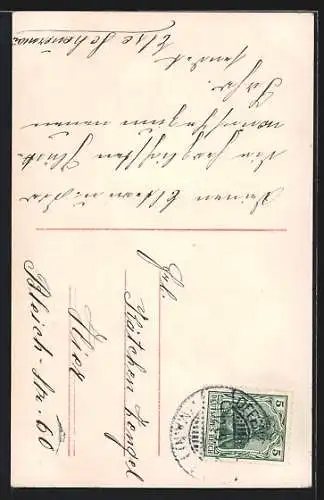 Deinen Eltern u. Dir
die herzlichsten Glück-
wünsche zum neuen
Jahre.
sendet
Else
Frl.
Käthchen Zengel
Hier
Bleich-Str. 60
5 5
DEUTSCHES REICH
(MAIN)